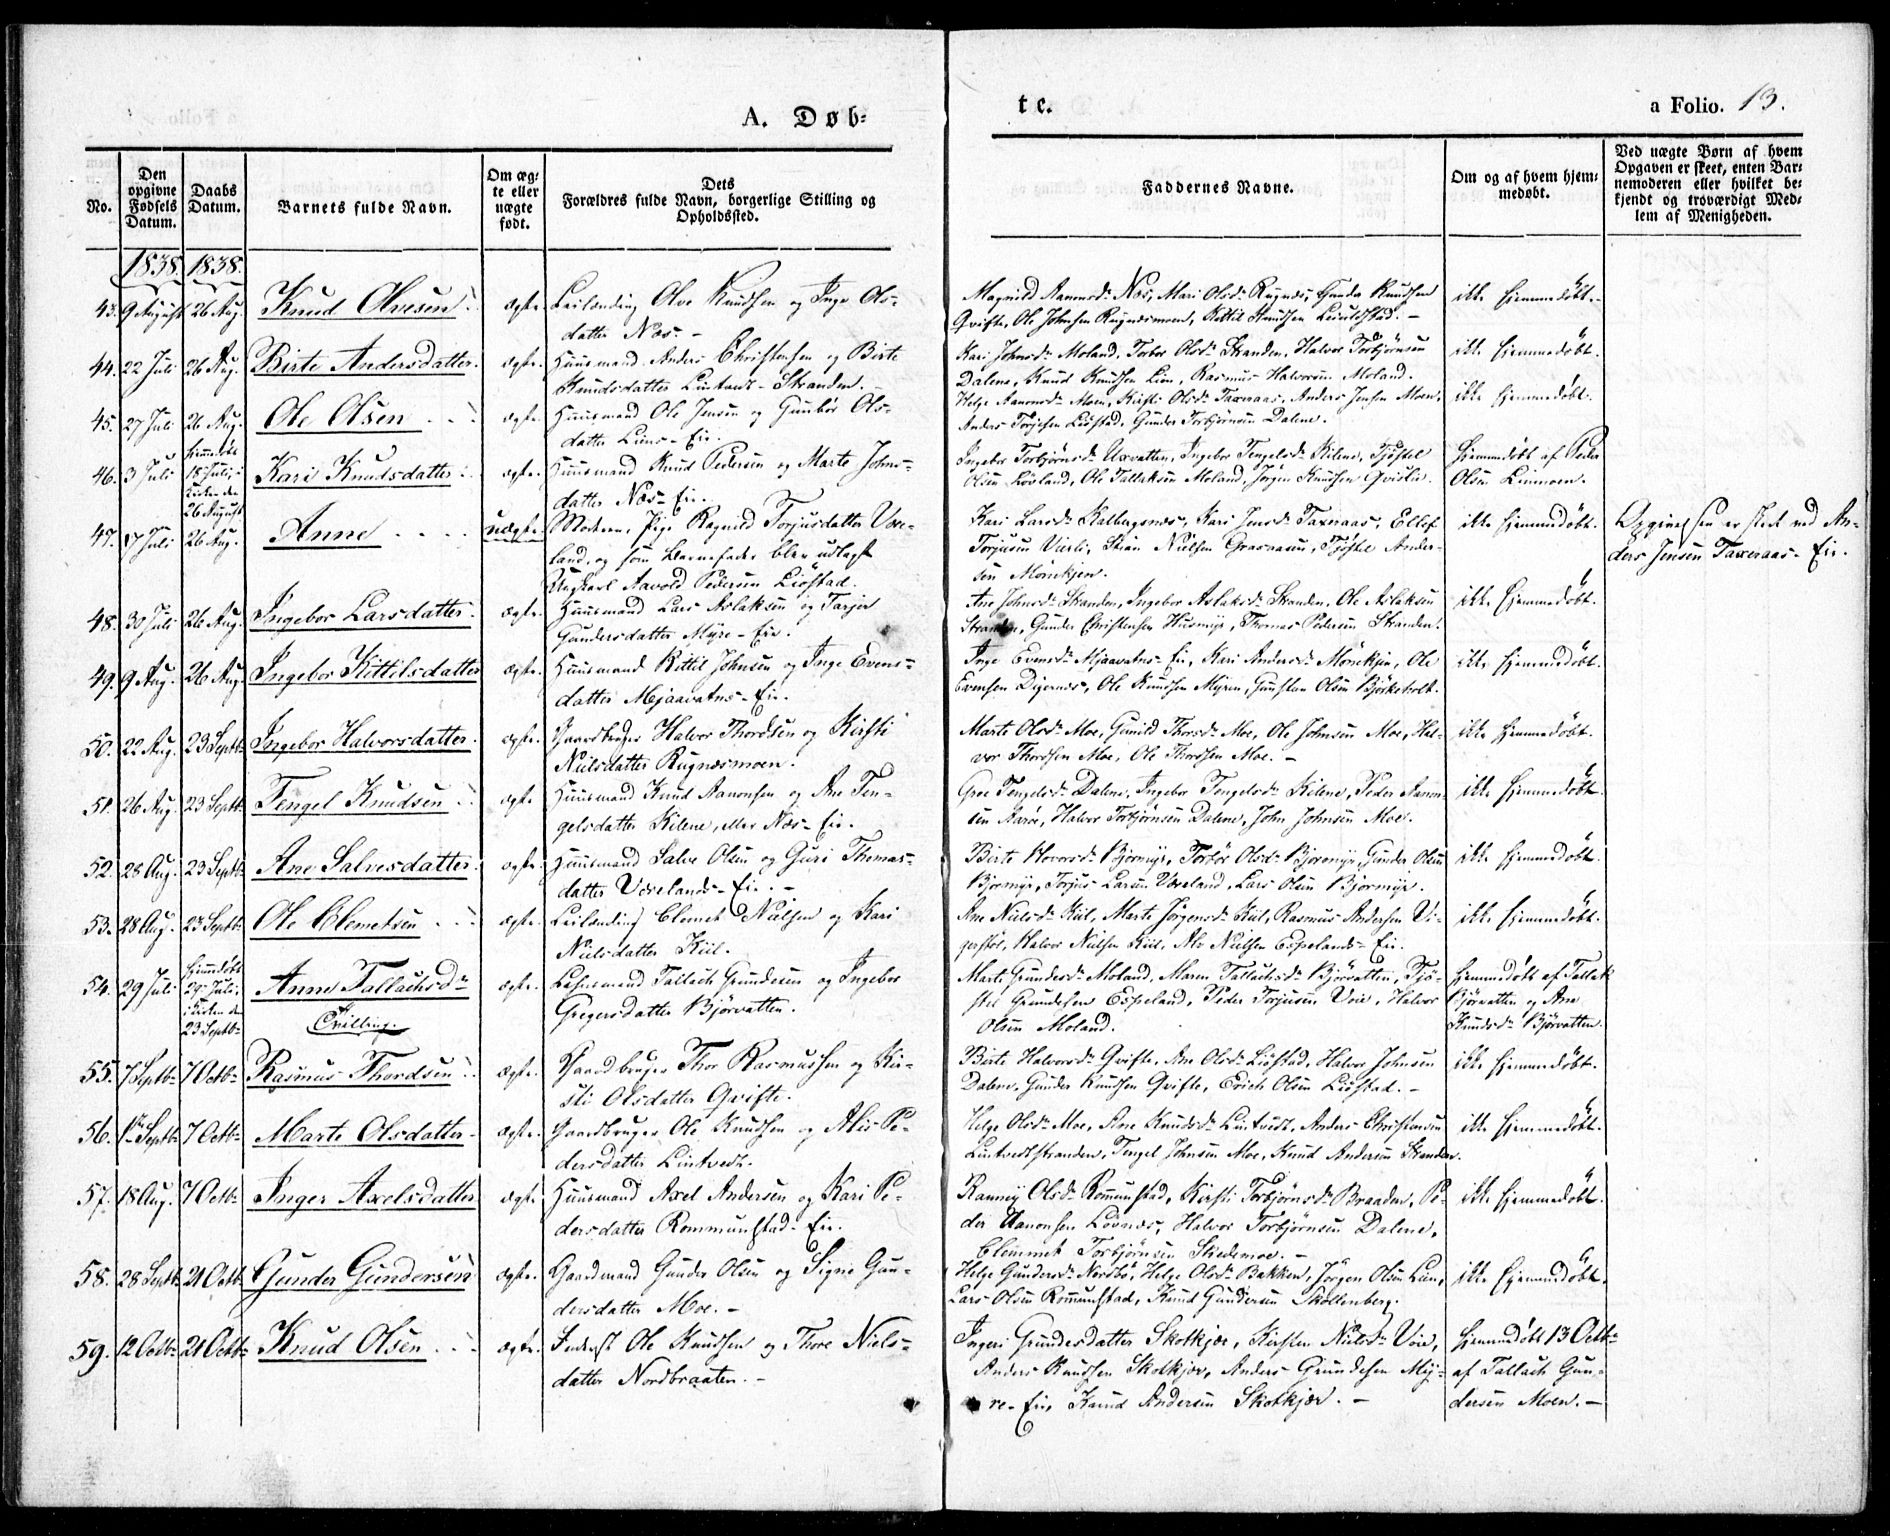 A. Døb=
te.
a Folio. 13.
No.
Den opgivne Fødsels Datum.
Daabs Datum.
Barnets fulde Navn.
Om æg=te eller uægte født.
Dets Forældres fulde Navn, borgerlige Stilling og Opholdssted.
Faddernes Navne.
Om og af hvem hjem=medøbt.
Ved uægte Børn af hvem Opgaven er skeet, enten Bar=nemoderen eller hvilket be=kjendt og troværdigt Med=lem af Menigheden.
1838. 1838.
43. 9 August 26 Aug. Knud Olvesen ægte. Leilænding Olve Knudsen og Inge Ols=
datter Næs. -
Magnild Aanonsd. Næs, Mari Olsd. Rugnes, Gunder Knudsen
Qvifte, Ole Johnsen Rugnesmoen, Kittil Knudsen . - ikke hjemmedöbt.
44. 22 Juli 26 Aug. Birte Andersdatter. ægte. Huusmand Anders Christensen og Birte
Knudsdatter Lintvedt-Stranden. -
Kari Johnsd. Moland, Torbor Olsd. Stranden, Halvor Torbjørnsen
Dalene, Knud Knudsen Lien, Rasmus Halvorsen Moland. ikke hjemmedöbt.
45. 27 Juli 26 Aug. Ole Olsen ægte. Huusmand Ole Jensen og Gunbor Ols=
datter Liens-Eie.
Helge Aanonsd. Moen, Kirsti Olsd. Taxeraas, Anders Jensen Moen,
Anders Torjesen Liöstad, Gunder Torbjörnsen Dalene. ikke hjemmedöbt.
46. 3 Juli hjemmedöbt 18 Juli, i Kirken den 26 August Kari Knudsdatter. ægte. Huusmand Knud Pedersen og Marte Johns=
datter Næs-Eie.
Ingebor Torbjörnsd. Uxvatten, Ingebor Tengelsd. Kilene, Tjöstel
Olsen Lövland, Ole Tallaksen Moland, Jörgen Knudsen Qvislie. hjemmedöbt af Peder
Olsen Linmoen.
47. 17 Juli 26 Aug. Anne uægte. Moderen, Pige Ragnild Torjusdatter Væve=
land, og som Barnefader blev udlagt
Ungkarl Aavold Pedersen Liöstad.
Kari Larsd. Kalbergsnæs, Kari Jensd. Taxeraas, Ellef
Torjusen Værli, Stian Nielsen Grasaasen, Tjöstel Ander=
sen Mönekjern. ikke hjemmedöbt.
Opgivelsen er skeet ved An=
ders Jensen Taxeraas-Eie.
48. 30 Juli 26 Aug. Ingebor Larsdatter. ægte. Huusmand Lars Aslaksen og Tarjer
Gundersdatter Myre-Eie.
Ane Johnsd. Stranden, Ingebor Aslaksd. Stranden, Ole Aslaksen
Stranden, Gunder Christensen Husmyr, Thomas Pedersen Stranden. ikke hjemmedöbt.
49. 9 Aug. 26 Aug. Ingebor Kittilsdatter ægte. Huusmand Kittil Johnsen og Inge Evens=
datter Mejaavatns-Eie.
Inge Evensd. Mjaavatns-Eie, Kari Andersd. Mönekjen, Ole
Evensen Digernæs, Ole Knudsen Myren, Gunstan Olsen Björkeholt. ikke hjemmedöbt.
50. 22 Aug. 23 Septb. Ingebor Halvorsdatter. ægte. Gaardbruger Halvor Thordsen og Kirsti
Nielsdatter Rugnæsmoen.
Marte Olsd. Moe, Gunild Thorsd. Moe, Ole Johnsen Moe, Hal=
vor Thordsen Moe, Ole Thordsen Moe. - ikke hjemmedöbt.
51. 26 Aug. 23 Septb. Tengel Knudsen ægte Huusmand Knud Aanonsen og Ane Ten=
gelsdatter Kilene, eller Næs-Eie.
Groe Tengelsd. Dalene, Ingebor Tengelsd. Kilene, Peder Aanon=
sen Aaröe, Halvor Torbjörnsen Dalene, John Johnsen Moe. ikke hjemmedöbt.
52. 28 Aug. 23 Septb. Ane Salvesdatter. ægte. Huusmand Salve Olsen og Guri Thomas=
datter Værelands-Eie. -
Birte Hovorsd. Björmyr, Torbör Olsd. Björmyr, Gunder Olsen
Björmyr, Torjus Larsen Væreland, Lars Olsen Björmyr. ikke hjemmedöbt.
53. 28 Aug. 23 Septb. Ole Clemetsen ægte. Leilænding Clemet Nielsen og Kari
Nielsdatter Kiil.
Ane Nielsd. Kiil, Marte Jörgensd. Kiil, Rasmus Andersen Vi=
gerstöl, Halvor Nielsen Kiil, Ole Nielsen Espelands-Eie. ikke hjemmedöbt.
54. 29 Juli hjemmedöbt 29 Juli, i Kirken den 23 Septb. Anne Tallachsd. ægte. Lehnsmand Tallach Grundesen og Ingebor
Tvilling. Gregersdatter Björvatten.
Marte Grundesd. Moland, Maren Tallachsd. Björvatten, Tjö=
stel Grundesen Espeland, Peder Torjusen Voie, Halvor
Olsen Moland.
hjemmedöbt af Tallak
Björvatten og Ane
Knudsd. Björvatten.
55. 7 Septb. 7 Octb. Rasmus Thordsen ægte. Gaardbruger Thor Rasmussen og Kir=
sti Olsdatter Qvifte.
Birte Halvorsd. Qvifte, Ane Olsd. Liöstad, Halvor Johnsen
Dalene, Gunder Knudsen Qvifte, Erich Olsen Liöstad. - ikke hjemmedöbt.
56. 1te Septb. 7 Octb. Marte Olsdatter ægte. Gaardbruger Ole Knudsen og Alis Pe=
dersdatter Lintvedt.
Helge Olsd. Moe, Ane Knudsd. Lintvedt, Anders Christensen
Lintvedtstranden, Tengel Johnsen Moe, Knud Andersen Stranden. ikke hjemmedöbt.
57. 18 Aug. 7 Octb. Inger Axelsdatter ægte. Huusmand Axel Andersen og Kari Pe=
dersdatter Rommundstad-Eie.
Ranney Olsd. Rommunstad, Kirsti Torbjörnsd. Braaden, Pe=
der Aanonsen Lövnæs, Halvor Torbjörnsen Dalene,
Clemmet Torbjörnsen Skedemoe. - ikke hjemmedöbt.
58. 28 Septb. 21 Octb. Gunder Gundersen ægte. Gaardmand Gunder Olsen og Signe Gun=
dersdatter Moe. -
Helge Gundersd. Nordbö, Helge Olsd. Bakken, Jörgen Olsen Lien,
Lars Olsen Rommunstad, Knud Gundersen Skollenberg. ikke hjemmedöbt.
59. 12 Octb. 21 Octb. Knud Olsen ægte. Inderst Ole Knudsen og Thore Niels=
datter Nordbraaten. -
Ingeri Grundesdatter Skotkjær, Kirsten Nielsd. Voie,
Anders Knudsen Skotkjær, Anders Grundesen My=
re-Eie, Knud Andersen Skotkjær. -
hjemmedöbt 13 Octb.
af Tallach Gun=
dersen Moen. -